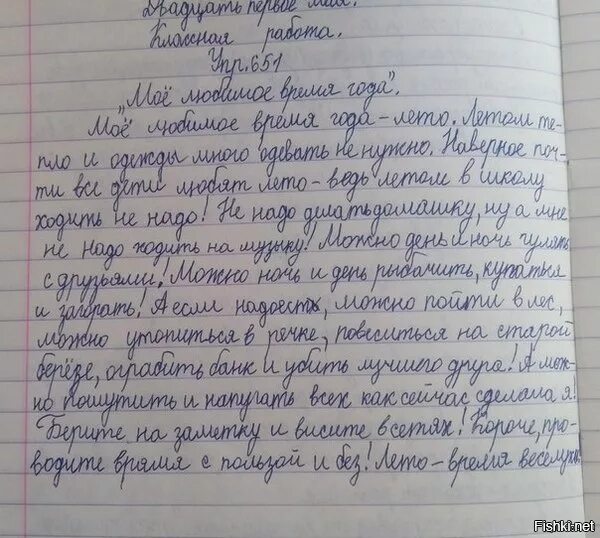 Двадцать первое мая.
Классная работа.
Упр. 651
„Моё любимое время года".
Моё любимое время года - лето. Летом те-
пло и одежды много одевать не нужно. Наверное поч-
ти все дети любят лето - ведь летом в школу
ходить не надо! Не надо делать домашку, ну а мне
не надо ходить на музыку! Можно день и ночь гулять
с друзьями! Можно ночь и день рыбачить, купаться
и загорать! А если надоесть, можно пойти в лес,
можно утопиться в речке, повеситься на старой
берёзе, ограбить банк и убить лучшего друга! А мож-
но пошутить и напугать всех как сейчас сделала я!
Берите на заметку и висите в сетях! Короче, про-
водите врямя с пользой и без! Лето - время веселухи.
Fishki.net